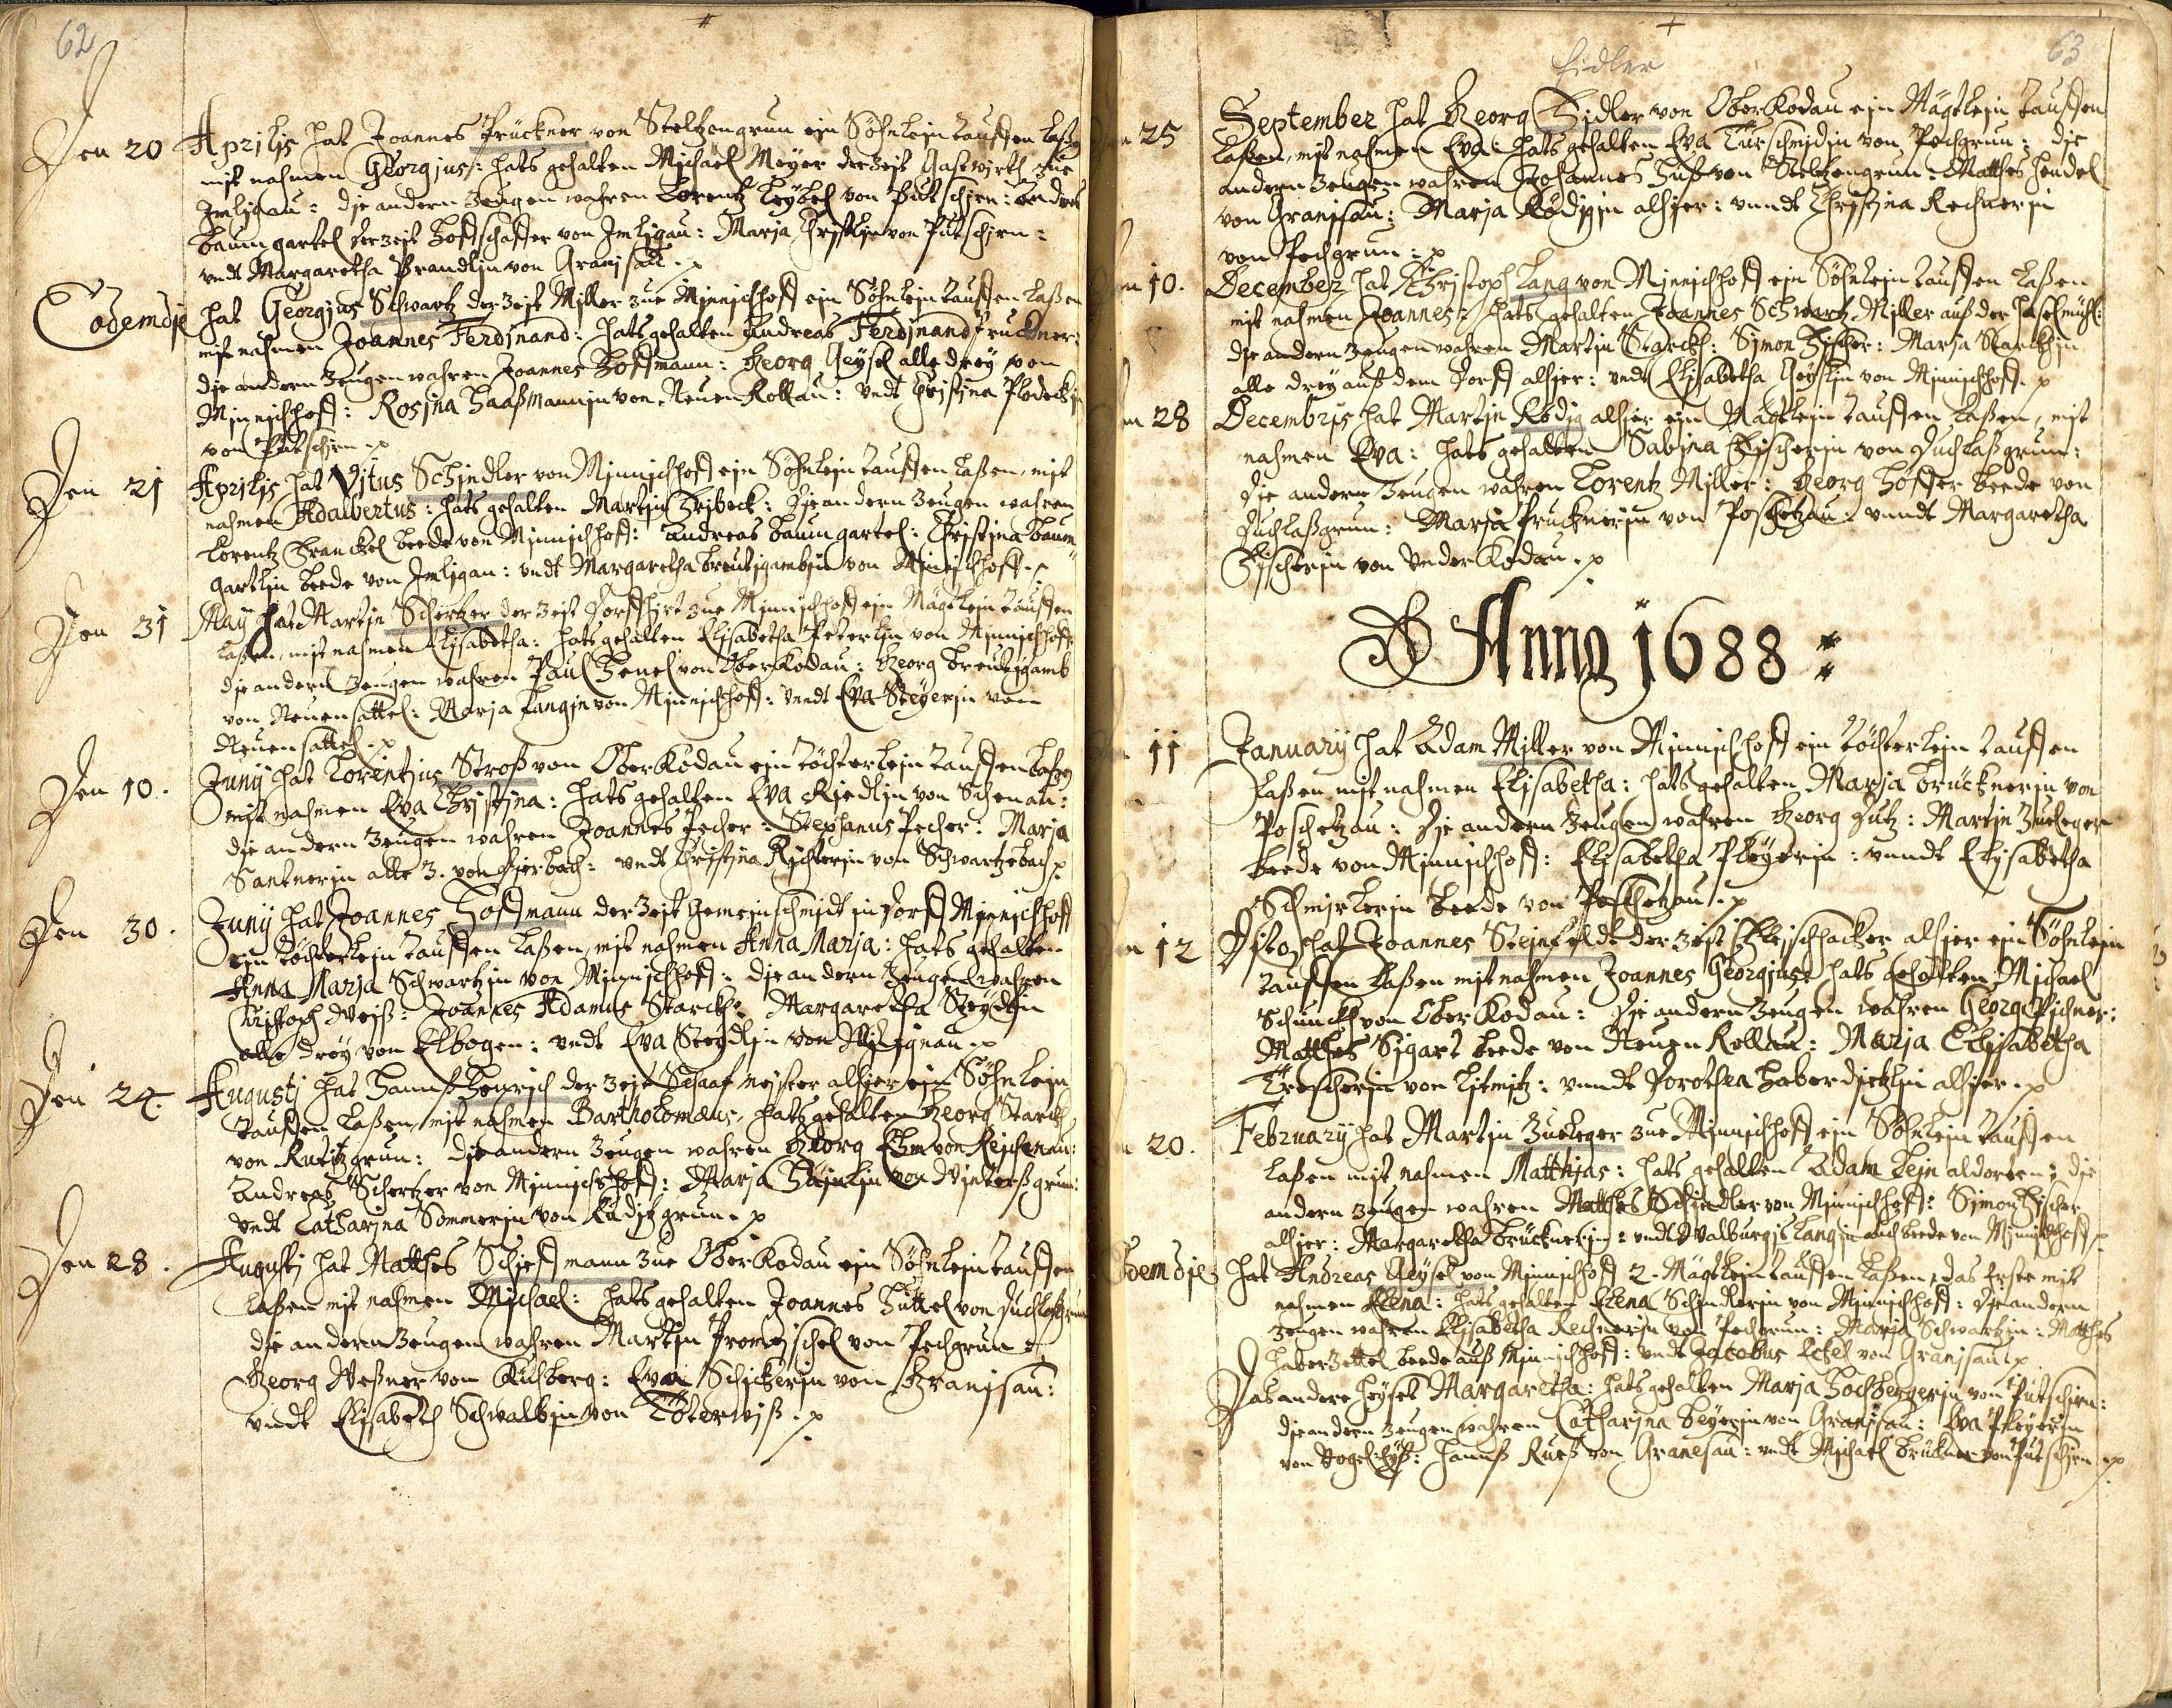 62
Den 20 Aprilis hat Joannes Prückner von Steltzengrun ein Söhnlein tauffen laßen
mit nahmen Georgius: hats gehalten Michael Meyer der Zeit Gastwirth zue
Imligau: die andern Zeugen wahren Lorentz Leybel von Putschirn: Andres
Baumgartel der Zeit Hoffschaffer von Imligau: Maria von Putschirn:
vndt Margaretha Brandlin von Granisau.
Eodem die hat Georgius Schwartz der Zeit Miller zue Münnichhoff ein Söhnlein tauffen laßen
mit nahmen Joannes Ferdinand: hats gehalten Andreas Ferdinand Pruckner:
die andern Zeugen wahren Joannes Hoffmann: Georg Geysel alle drey von
Minnichhoff: Rosina Haaßmannin von Neuen Rollau: vndt Christina Plodeckin
von Putschirn.
Den 21 Aprilis hat Vitus Schindler von Minnichhoff ein Söhnlein tauffen laßen, mit
nahmen Adalbertus: hats gehalten Martin Fribeck: die andern Zeugen wahren
Lorentz Franckel beede von Minnichhoff: Andreas Baumgartel: Christina Baum-
gartlin beede von Imligau: vndt Margaretha Breutigambin von Minnichhoff.
Den 31 May hat Martin Schertzer der Zeit Dorffhirt zue Minnichhoff ein Mägdlein tauffen
laßen, mit nahmen Elisabetha: hats gehalten Elisabetha Peterlin von Minnichhoff:
die andern Zeugen wahren Paul Henel von Ober Kodau: Georg Breutigamb
von Neuensattel: Maria Langin von Minnichhoff: vndt Eva Steyerin vom
Neuensattel.
Den 10. Juny hat Lorentzius Stroß von Ober Kodau ein Töchterlein tauffen laßen
mit nahmen Eva Christina: hats gehalten Eva Riedlin von Schönau:
die andern Zeugen wahren Joannes Pecher: Stephanus Pecher: Maria
Santnerin alle 3. von: vndt Christina Richterin von Schwartzebach
Den 30. Juny hat Joannes Hoffmann der Zeit Gemeinschmidt in Dorff Minnichhoff
ein Töchterlein tauffen laßen, mit nahmen Anna Maria: hats gehalten
Anna Maria Schwartzin von Minnichhoff: die andern Zeugen wahren
Christoph Weiß: Joannes Adamus Starck: Margaretha Steydlin
alle drey von Elbogen: vndt Eva Steydlin von
Den 24. Augusti hat Hannß Henrich der Zeit Schaaf Meister alhier ein Söhnlein
tauffen laßen, mit nahmen Bartholomæus, hats gehalten Georg Starck
von Ruditzgrun: die andern Zeugen wahren Georg von Reichenau:
Andreas Schertzer von Minnichhoff: Maria Häinlin von Wintersgrun:
vndt Catharina Sommerin von Rüditzgrun.
Den 28. Augusti hat Matthes Schiestmann zue Ober Kodau ein Söhnlein tauffen
laßen mit nahmen Michael: hats gehalten Joannes Hüttel von Duchlaßgrun
die andern Zeugen wahren Martin von Pechgrun:
Georg Meßner von Kulsberg: Eva Schickerin von Granisau:
vndt Elisabeth Schwalbin von
63
Fidler
25 September hat Georg Fidler von Ober Kodau ein Mägdlein tauffen
laßen, mit nahmen Eva: hats gehalten Eva Türschmidin von Pechgrun: die
andern Zeugen wahren Johannes Huß von Steltzengrun: Matthes Hendel
von Granissau: Maria Rödigin alhier: vnndt Christina Rechnerin
von Pechgrun:
10. December hat Christoph Lang von Minnichhoff ein Söhnlein tauffen laßen
mit nahmen Joannes: hats gehalten Joannes Schwartz Miller auß der Haselmühl:
die andern Zeugen wahren Martin Starck: Simon Fischer: Maria Starckin
alle drey auß dem Dorff alhier: vndt Elisabetha Geyslin von Minnichhoff.
28 Decembris hat Martin Rödig alhier ein Mägdlein tauffen laßen, mit
nahmen Eva: hats gehalten Sabina Fischerin von Duchlaßgrun:
die andern Zeugen wahren Lorentz Miller: Georg Höffer beede von
Duchlaßgrun: Maria Prucknerin von Poschetzau: vnndt Margaretha
Fischerin von Vnder Kodau.
Anno 1688
11 January hat Adam Miller von Minnichhoff ein Töchterlein tauffen
laßen mit nahmen Elisabetha: hats gehalten Maria Brücknerin von
Poschetzau: die andern Zeugen wahren Georg Lutz: Martin Zueleger
beede von Minnichhoff: Elisabetha Pleyerin: vnndt Elysabetha
Schmirlerin beede von Poschetzau.
12 Dito hat Joannes Steinfeldt der Zeit Fleischhacker alhier ein Söhnlein
tauffen laßen mit nahmen Joannes Georgius: hats gehalten Michael
Schunck von Ober Kodau: die andern Zeugen wahren Georg Pichner:
Matthes Sigart beede von Neuen Rollau: Maria Elisabetha
Trescherin von Litmitz: vnndt Dorothea Haberditzlin alhier.
20. February hat Martin Zueleger zue Minnichhoff ein Söhnlein tauffen
laßen mit nahmen Matthias: hats gehalten Adam Lein aldorten: die
andern Zeugen wahren Matthes Schindler von Minnichhoff: Simon Fischer
alhier: Margaretha Brücknerin: vndt Walburgis Langin auch beede von Minnichhoff
Eodem die hat Andreas Geysel von Minnichhoff 2. Mägdlein tauffen laßen, das Erste mit
nahmen Elena: hats gehalten Elena Schindlerin von Minnichhoff: die andern
Zeugen wahren Elisabetha Rechnerin von Pechgrun: Maria Schwartzin: Matthes
Haberzettel beede auß Minnichhoff: vndt Jacobus Eckel von Granisau
Das andere heyset Margaretha: hats gehalten Maria Hochbergerin von Putschirn:
die andern Zeugen wahren Catharina Beyerin von Granisau: Eva Pleyerin
von: Hannß Rueß von Granesau: vndt Michael Brückner von Putschirn.